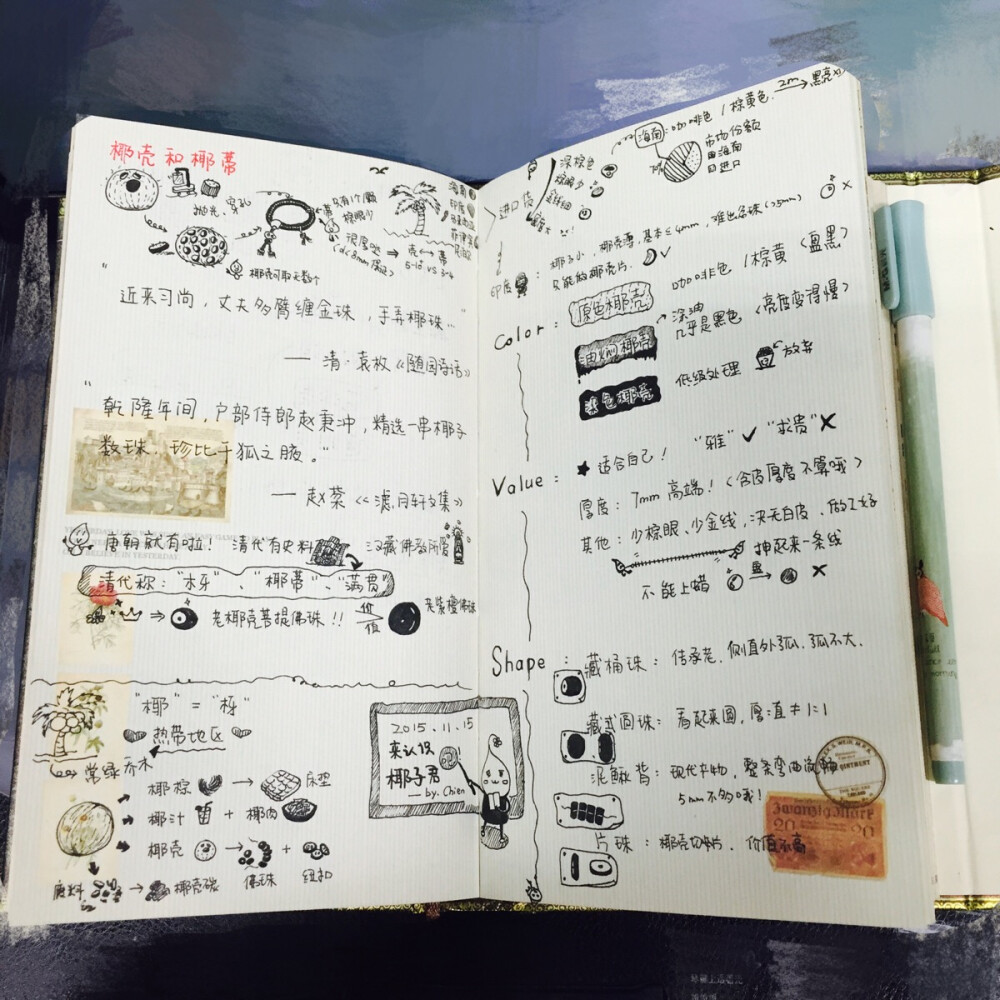 椰壳和椰蒂
抛光、穿孔
只有1个圆
棕眼少
很厚哦 → 壳 ↔ 蒂
5-10 vs 3-4
椰壳可取无数个
海南
印度
"
近来习尚，丈夫多臂缠金珠，手弄椰珠…"
—— 清·袁枚《随园诗话》
"
乾隆年间，户部侍郎赵秉冲，精选一串椰子
数珠，珍比千狐之腋。"
—— 赵棻《滤月轩文集》
唐朝就有啦！ 清代有史料 汉藏佛教所爱
清代称："木牙"、"椰蒂"、"满贯"
老椰壳菩提佛珠!! 价值 > 老紫檀佛珠
"椰" = "枒"
热带地区
常绿乔木
椰棕 → 床垫
椰汁 + 椰肉
椰壳 → 佛珠 + 纽扣
废料 → 椰壳碳
2015.11.15
来认识
椰子君
— by. Chien
海南：咖啡色 / 棕黄色 2m → 黑亮
市场份额
海南
进口
进口货
深棕色
棕眼少
印度：椰子小，椰壳薄，基本≤4mm，难出条珠(>5mm)
只能的椰壳片.
Color：
原色椰壳 咖啡色 / 棕黄 〈盘黑〉
油焖椰壳 → 涂油
几乎是黑色 〈亮度变得慢〉
染色椰壳 低级处理 放弃
Value：
★ 适合自己！ "雅" ✓ "求贵" ✗
厚度：7mm 高端！(含皮厚度不算哦)
其他：少棕眼、少金线，决无白皮，做工好
抻起来一条线
不能上蜡 盘 → ✗
Shape：
藏桶珠：传承老，侧直外弧，弧不大.
藏式圆珠：看起来圆，厚:直≠1:1
泥鳅背：现代产物，整条弯曲流畅
5mm不多哦！
片珠：椰壳切片，价值不高
OINTMENT
Zwanzig Mark
20 20